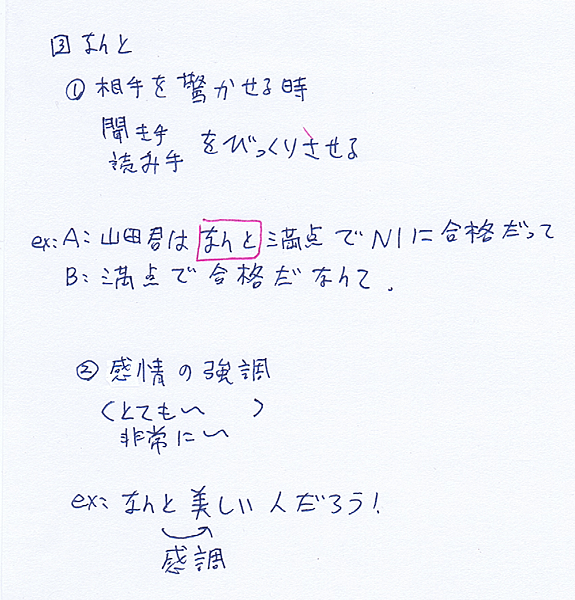 ③ なんと
① 相手を驚かせる時
聞き手
読み手 をびっくりさせる
ex: A: 山田君はなんと満点でN1に合格だって
B: 満点で合格だなんて.
② 感情の強調
(とても〜 )
非常に〜
ex: なんと美しい人だろう!
感調